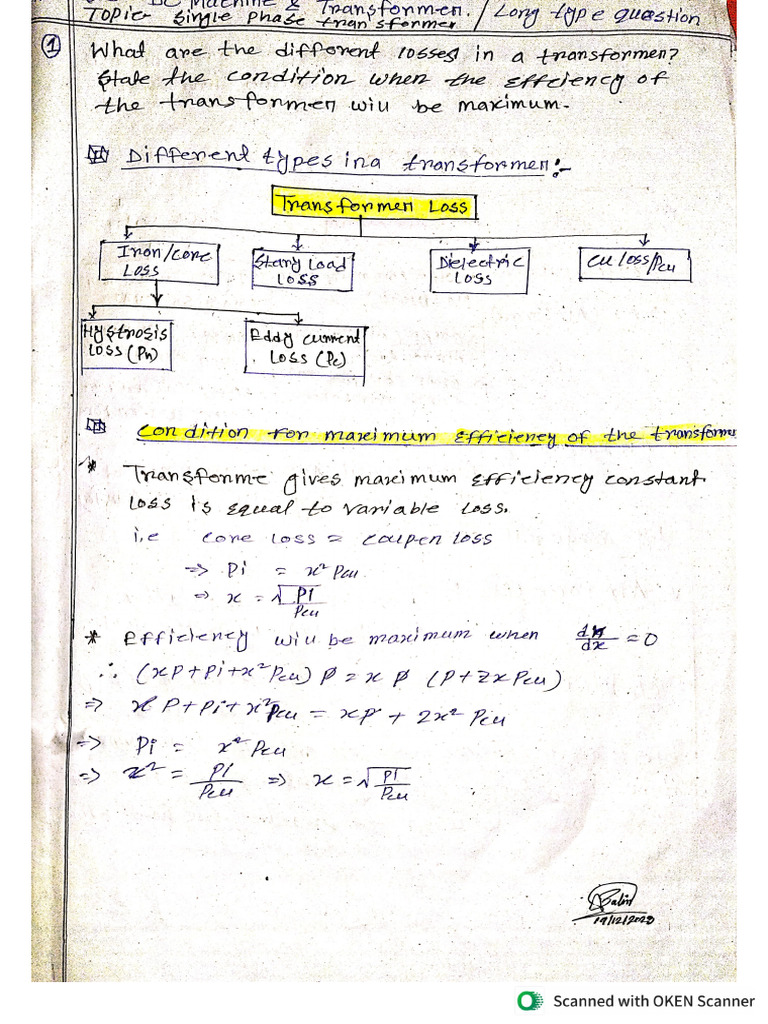 DC Machine & Transformen. / Long type question
Topic- Single phase transformer
① What are the different losses in a transformen?
State the condition when the effeiency of
the transformen will be maximum.
Different types in a transformen:-
Transformen Loss
Iron/core Loss
Stary Load Loss
Dielectric Loss
cu loss/Pcu
Hystrosis Loss (Ph)
Eddy current Loss (Pe)
Condition for maximum efficiency of the transformer
* Transforme gives maximum efficiency constant
Loss is equal to variable Loss.
i,e core loss = coupen loss
=> Pi = x² Pcu
=> x = √Pi/Pcu
* Efficiency will be maximum when dη/dx = 0
∴ (xP+Pi+x²Pcu) P = x P (P+2xPcu)
=> xP+Pi+x²Pcu = xP + 2x² Pcu
=> Pi = x² Pcu
=> x² = Pi/Pcu => x = √Pi/Pcu
19/12/2023
Scanned with OKEN Scanner